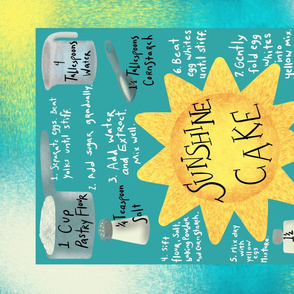 4
Tablespoons
Water
1½ Tablespoons
Cornstarch
6. Beat
egg whites
until stiff.
7. Gently
fold egg
whites
into
yellow mix.
1. Separate eggs. Beat
yolks until stiff.
2. Add sugar gradually.
3. Add Water
and Extract.
Mix well
SUNSHINE
CAKE
1 Cup
Pastry Flour
¼ Teaspoon
Salt
4. Sift
flour, salt,
baking powder
and cornstarch.
5. Mix dry
with
yellow
egg
mixture
1½